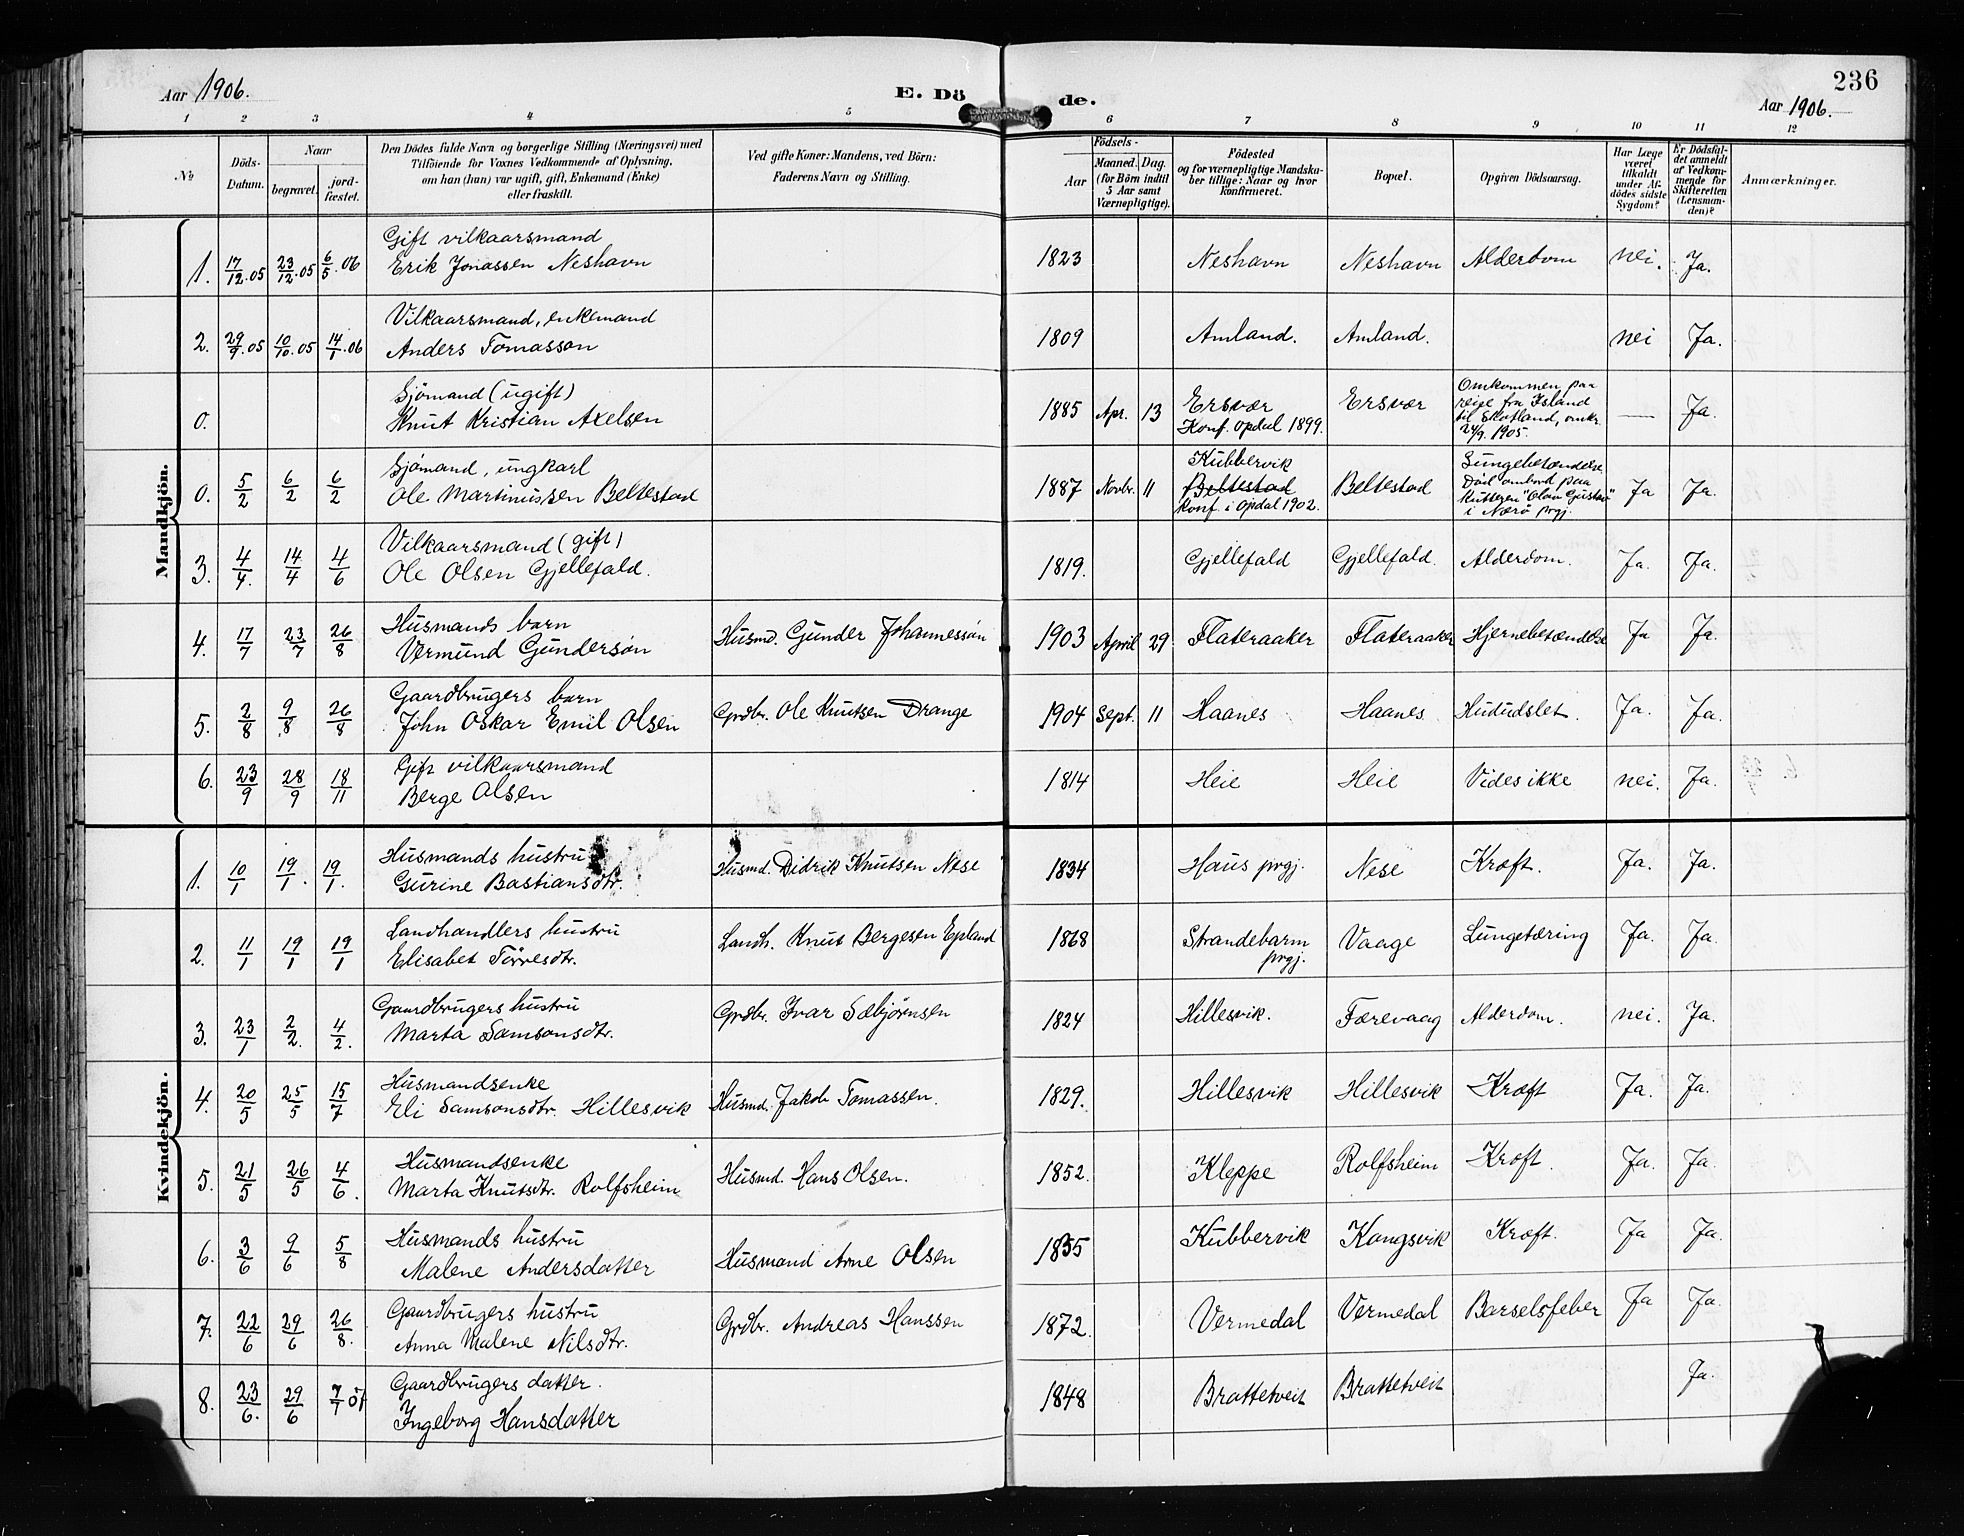 236
Aar 1906. E. Dö de. Aar 1906.
1 2 3 4 5 6 7 8 9 10 11 12
No
Döds-Datum.
Naar
begravet. jord-fæstet.
Den Dödes fulde Navn og borgerlige Stilling (Næringsvei) med
Tilföiende for Voxnes Vedkommende af Oplysning,
om han (hun) var ugift, gift, Enkemand (Enke)
eller fraskilt.
Ved gifte Koner: Mandens, ved Börn:
Faderens Navn og Stilling.
Födsels-
Aar
Maaned. Dag.
(for Börn indtil
5 Aar samt
Værnepligtige).
Födested
og for værnepligtige Mandska-
ber tillige: Naar og hvor
konfirmeret.
Bopæl.
Opgiven Dödsaarsag.
Har Læge
været
tilkaldt
under Af-
dödes sidste
Sygdom?
Er Dödsfal-
det anmeldt
af Vedkom-
mende for
Skifteretten
(Lensman-
den)?
Anmærkninger.
Mandkjön.
Gift vilkaarsmand
1. 17/12.05 23/12.05 6/5.06 Erik Jonassen Neshavn 1823 Neshavn Neshavn Alderdom nei. Ja.
Vilkaarsmand, enkemand
2. 29/9.05 10/10.05 14/1.06 Anders Tomasson 1809 Amland. Amland. nei Ja.
Sjömand (ugift)
0. Knut Kristian Axelsen 1885 Apr. 13 Ersvær Ersvær — Ja.
Konf. Opdal 1899.
Omkommen paa
reise fra Island
til Skotland, omkr.
24/9. 1905.
Sjömand, ungkarl
0. 5/2 6/2 6/2 Ole Martinussen Beltestad 1887 Novbr. 11 Kubbervik Beltestad Ja Ja.
Beltestad
Konf. i Opdal 1902.
Lungebetændelse
Död ombord paa
kutteren "Olav Gustav"
i Nærö prgj.
Vilkaarsmand (gift)
3. 4/4. 14/4 4/6 Ole Olsen Gjellefald. 1819. Gjellefald Gjellefald. Alderdom. Ja. Ja.
Husmands barn
4. 17/7 23/7 26/8 Vermund Gunderson Husmd. Gunder Johannesson 1903 April 29 Flateraaker Flateraaker Hjernebetændelse Ja Ja.
Gaardbrugers barn
5. 2/8 9/8 26/8 John Oskar Emil Olsen Grdbr. Ole Knutsen Drange 1904 Sept. 11 Haanes Haanes. Hududslet. Ja. Ja.
Gift vilkaarsmand
6. 23/9 28/9 18/11 Berge Olsen 1814 Heie Heie Vides ikke nei. Ja.
Kvindekjön.
Husmands hustru
1. 10/1 19/1. 19/1. Gurine Bastiansdtr. Husmd. Didrik Knutsen Nese 1834 Haus prgj. Nese Kræft. Ja. Ja.
Landhandlers hustru
2. 11/1 19/1 19/1 Elisabet Törresdtr. Landh. Knut Bergesen Epland 1868 Strandebarm prgj. Vaage Lungetæring Ja. Ja.
Gaardbrugers hustru
3. 23/1 2/2. 4/2. Marta Samsonsdtr. Grdbr. Ivar Sæbjörensen 1824 Hillesvik. Færevaag Alderdom. nei. Ja.
Husmandsenke
4. 20/5 25/5 15/7 Eli Samsonsdtr. Hillesvik Husmd. Jakob Tomassen. 1829. Hillesvik Hillesvik Kræft Ja. Ja.
Husmandsenke
5. 21/5 26/5 4/6. Marta Knutsdtr. Rolfsheim Husmd. Hans Olsen. 1852. Kleppe Rolfsheim Kræft. Ja. Ja.
Husmands hustru
6. 3/6 9/6 5/8 Malene Andersdatter Husmand Arne Olsen 1855 Kubbervik Kongsvik Kræft. Ja Ja.
Gaardbrugers hustru
7. 22/6 29/6 26/8. Anna Malene Nilsdtr. Grdbr. Andreas Hanssen 1872. Vermedal Vermedal Barselsfeber Ja Ja.
Gaardbrugers datter.
8. 23/6. 29/6 7/7 Ingeborg Hansdatter 1848 Brattetveit Brattetveit Ja.